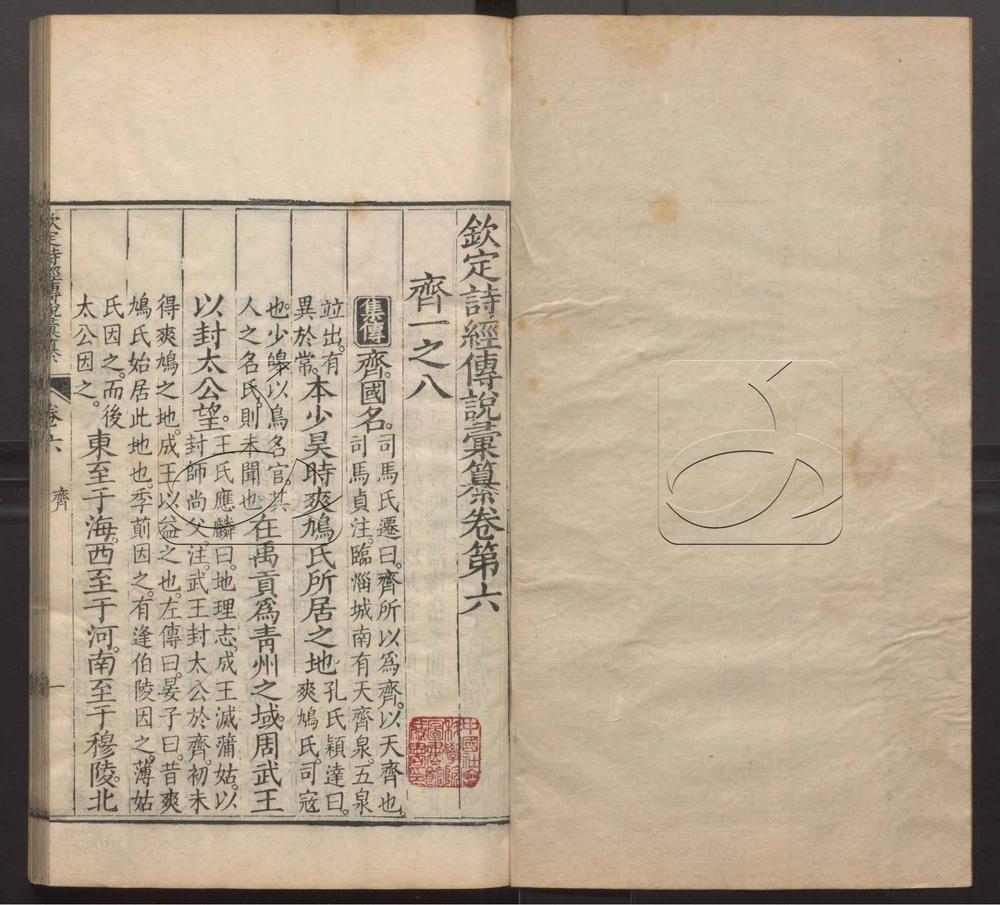 欽定詩經傳說彙纂卷第六
齊一之八
集傳齊國名。司馬氏遷曰。齊所以為齊。以天齊也。
司馬貞注。臨淄城南有天齊泉。五泉
竝出。有
異於常。本少昊時爽鳩氏所居之地孔氏穎達曰。
爽鳩氏。司寇
也。少皥以鳥名官。其
人之名氏。則未聞也。在禹貢為靑州之域。周武王
以封太公望。王氏應麟曰。地理志。成王滅蒲姑。以
封師尚父。注。武王封太公於齊。初未
得爽鳩之地。成王以益之也。左傳曰。晏子曰。昔爽
鳩氏始居此地也。季萴因之。有逢伯陵因之。薄姑
氏因之。而後
太公因之。東至于海。西至于河。南至于穆陵。北
欽定詩經傳說彙纂 卷六 齊 一
中國社會
科學院
圖書館